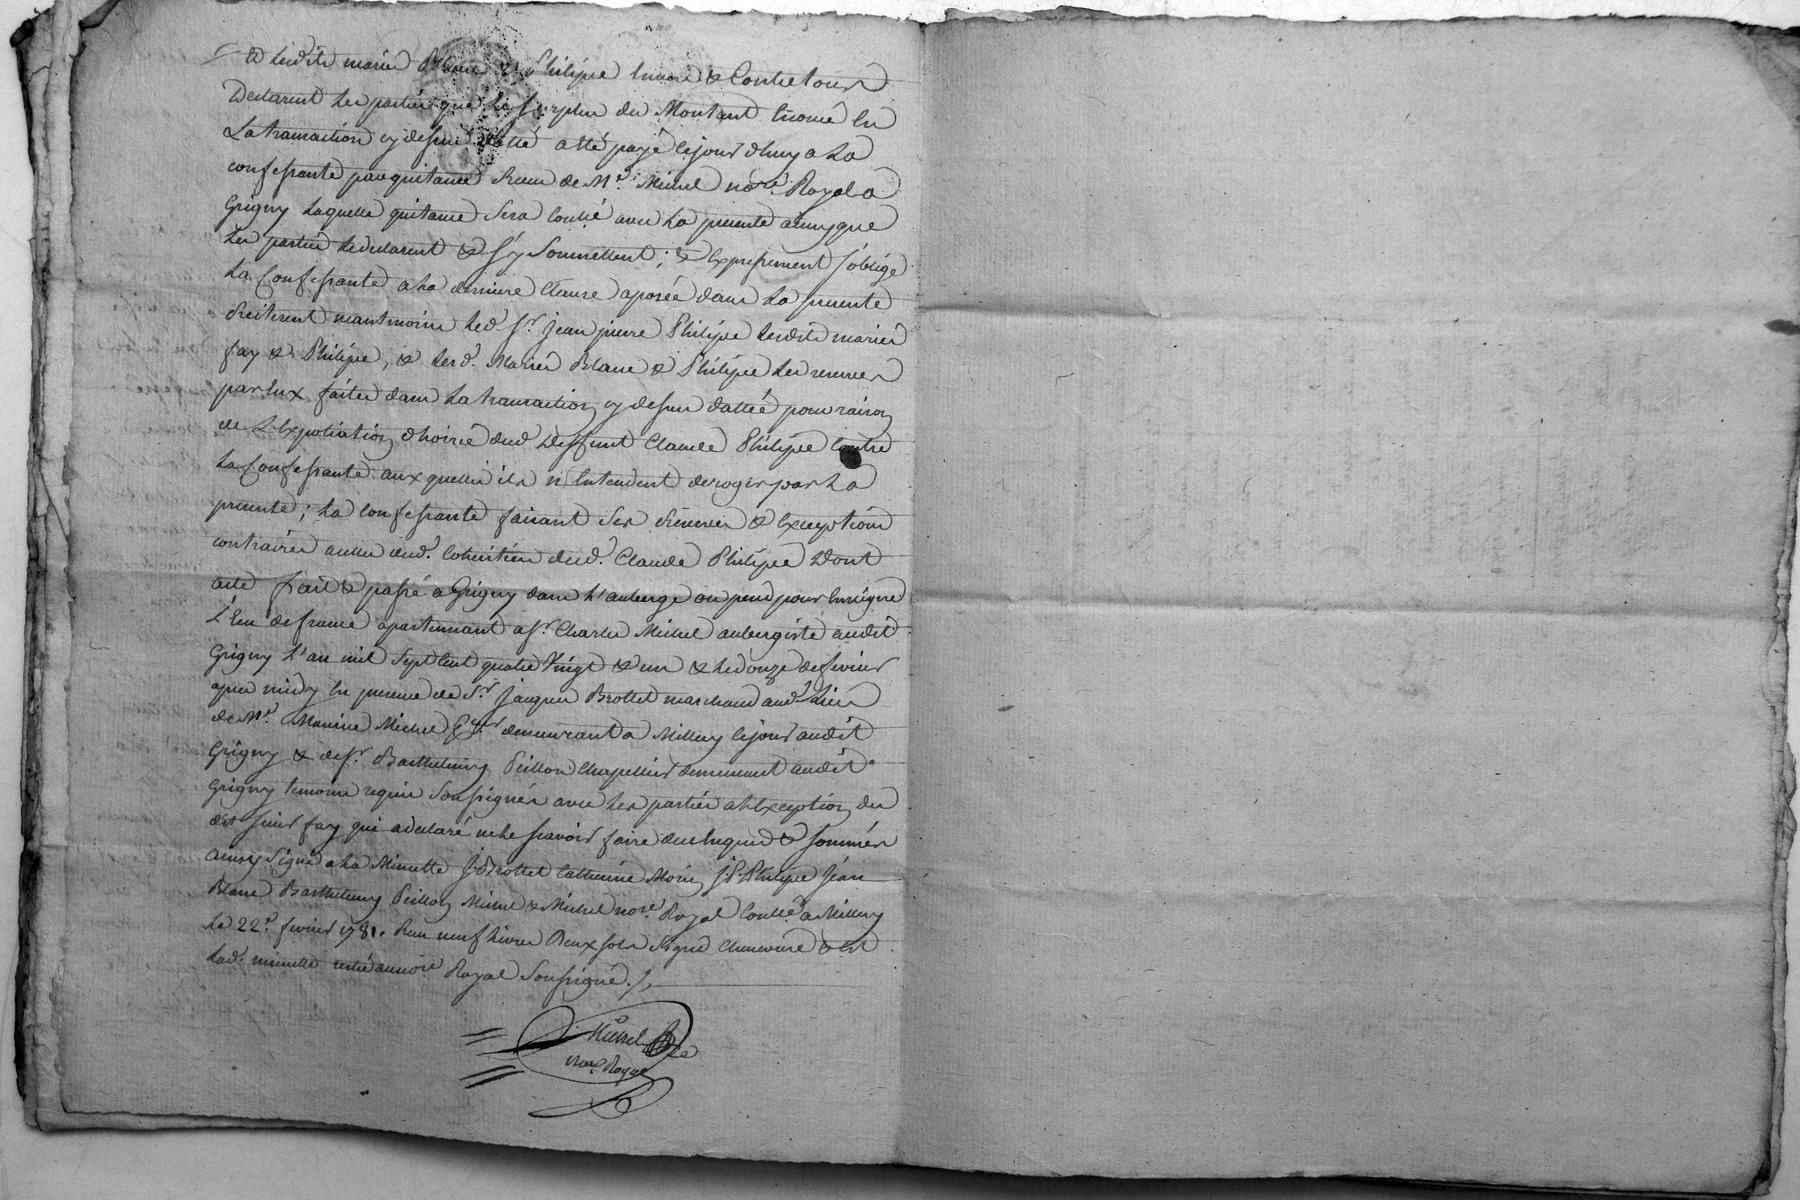 & lesdits mariés Blanc & Philippe envers & Contre tous
Declarent les parties que le surplus du Montant énoncé en
La transaction cy dessus dattée a été payé cejourd'huy a La
confessante par quitance Reçue de Me. Michel nore. Royal a
Grigny Laquelle quitance sera Controllé avec La presente ainsy que
Les parties le declarent & s'y soumettent ; & Expressement s'oblige
La Confessante a la derniere Clause aposée dans La presente
Reiterent neantmoins led. Sr. jean pierre Philippe lesdits mariés
fay & Philippe, & lesd. Mariés Blanc & Philippe les reserves
par Eux faites dans La transaction cy dessus dattée pour raison
de L'Expoliation d'hoirie dud. Deffunt Claude Philippe contre
La Confessante auxquelles ils n'Entendent deroger par La
presente ; La Confessante faisant ses Réserves & Exceptions
contraires aux dud. Cohéritiers dud. Claude Philippe Dont
acte fait & passé a Grigny dans L'auberge ou pend pour Enseigne
L'Ecu de france apartenant a Sr. Charles Michel aubergiste audit
Grigny L'an mil sept Cent quatre Vingt & un & le douze de fevrier
apres midy En presence de Sr. Jacques Brottet marchand aud. Lieu
de Me. Maurice Michel demeurant a Millery cejour audit
Grigny & de Sr. Barthelemy Peillon Chapellier demeurant audit
Grigny temoins requis Soussignés avec les parties a l'Exception du
dit sieur fay qui a declaré ne le savoir faire de ce Enquis & sommés
ainsy signé a La Minutte J. Brottet Catherine Morin J. P. Philippe Jean
Blanc Barthelemy Peillon Michel & Michel nore. Royal Contlé. a Millery
le 22e. fevrier 1781. Reçu neuf Livres Deux sols Signé Chenevire & Est
Lad. minutte restée au nore. Royal Soussigné./.
Michel
nore. Royal